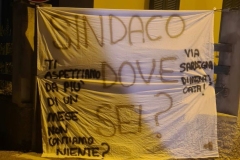 SINDACO
DOVE
SEI?
TI
ASPETTIAMO
DA PIU'
DI UN
MESE
NON
CONTIAMO
NIENTE?
VIA
SARDEGNA
DIMENTI
CATA!